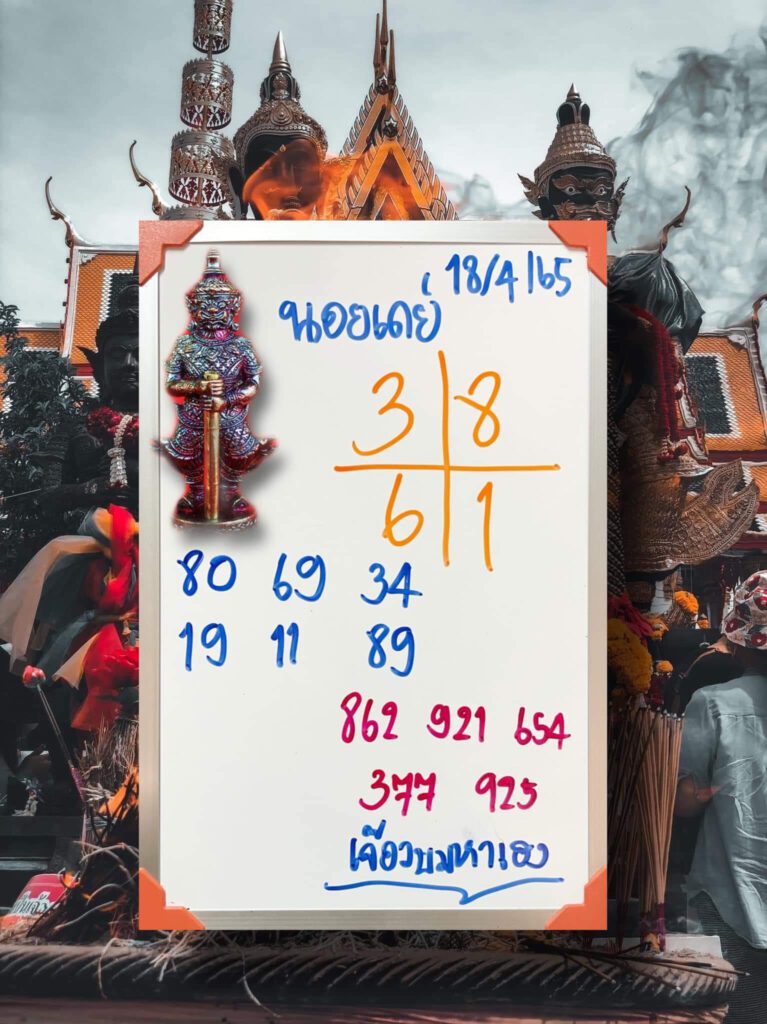 18/4/65
นอยเดย์
3 8
6 1
80 69 34
19 11 89
862 921 654
377 925
เจ๊อวบมหาเฮง